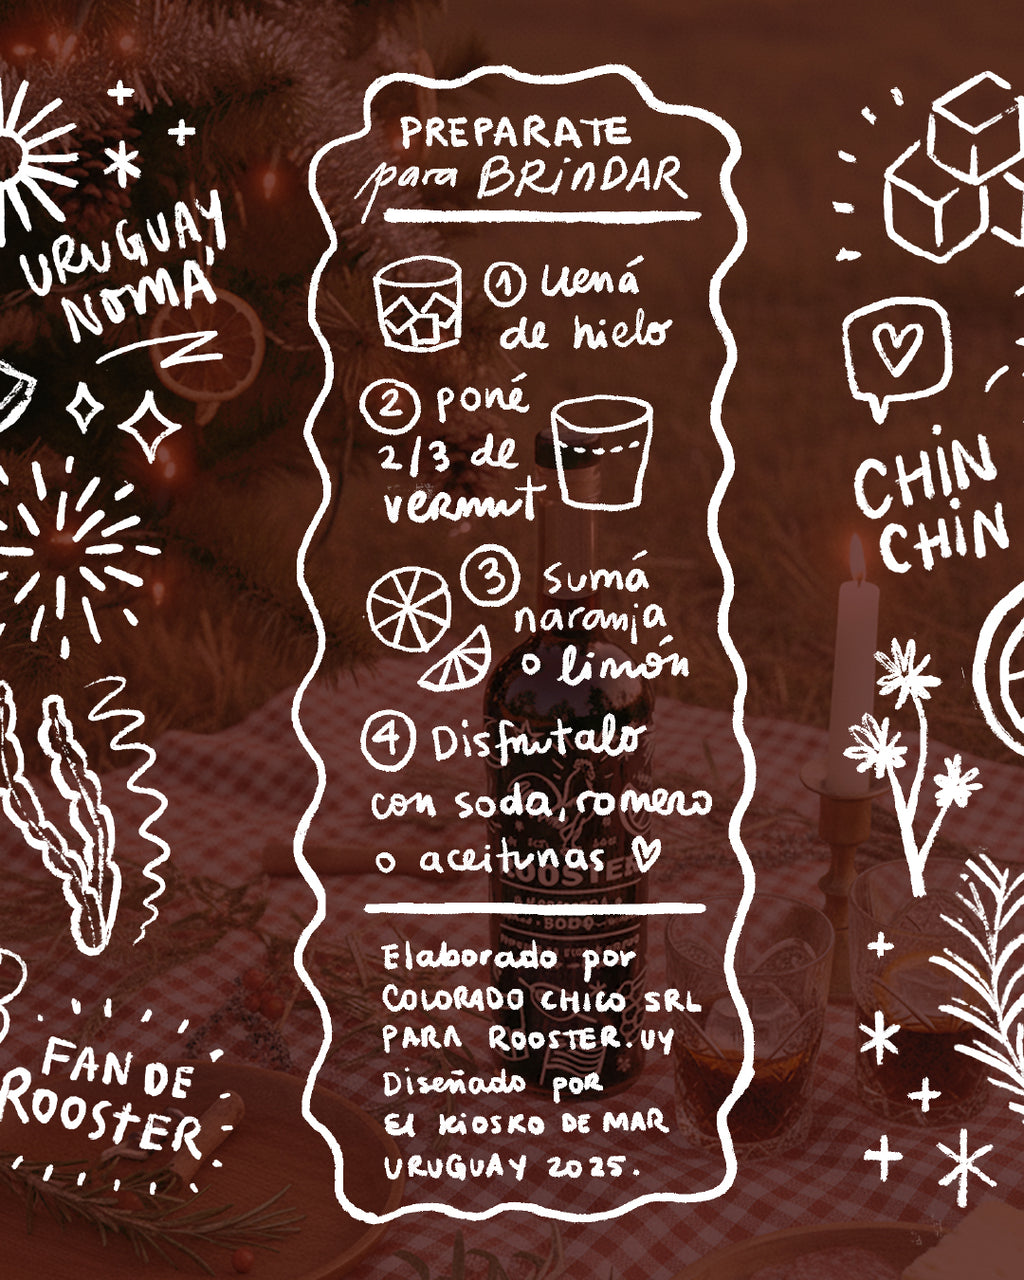 PREPARATE
para BRINDAR
1 Llená
de hielo
2 poné
2/3 de
vermut
3 sumá
naranja
o limón
4 Disfrutalo
con soda, romero
o aceitunas
Elaborado por
COLORADO CHICO SRL
PARA ROOSTER.UY
Diseñado por
El KIOSKO DE MAR
URUGUAY 2025.
URUGUAY
NOMÁ
FAN DE
ROOSTER
CHIN
CHIN
ROOSTER